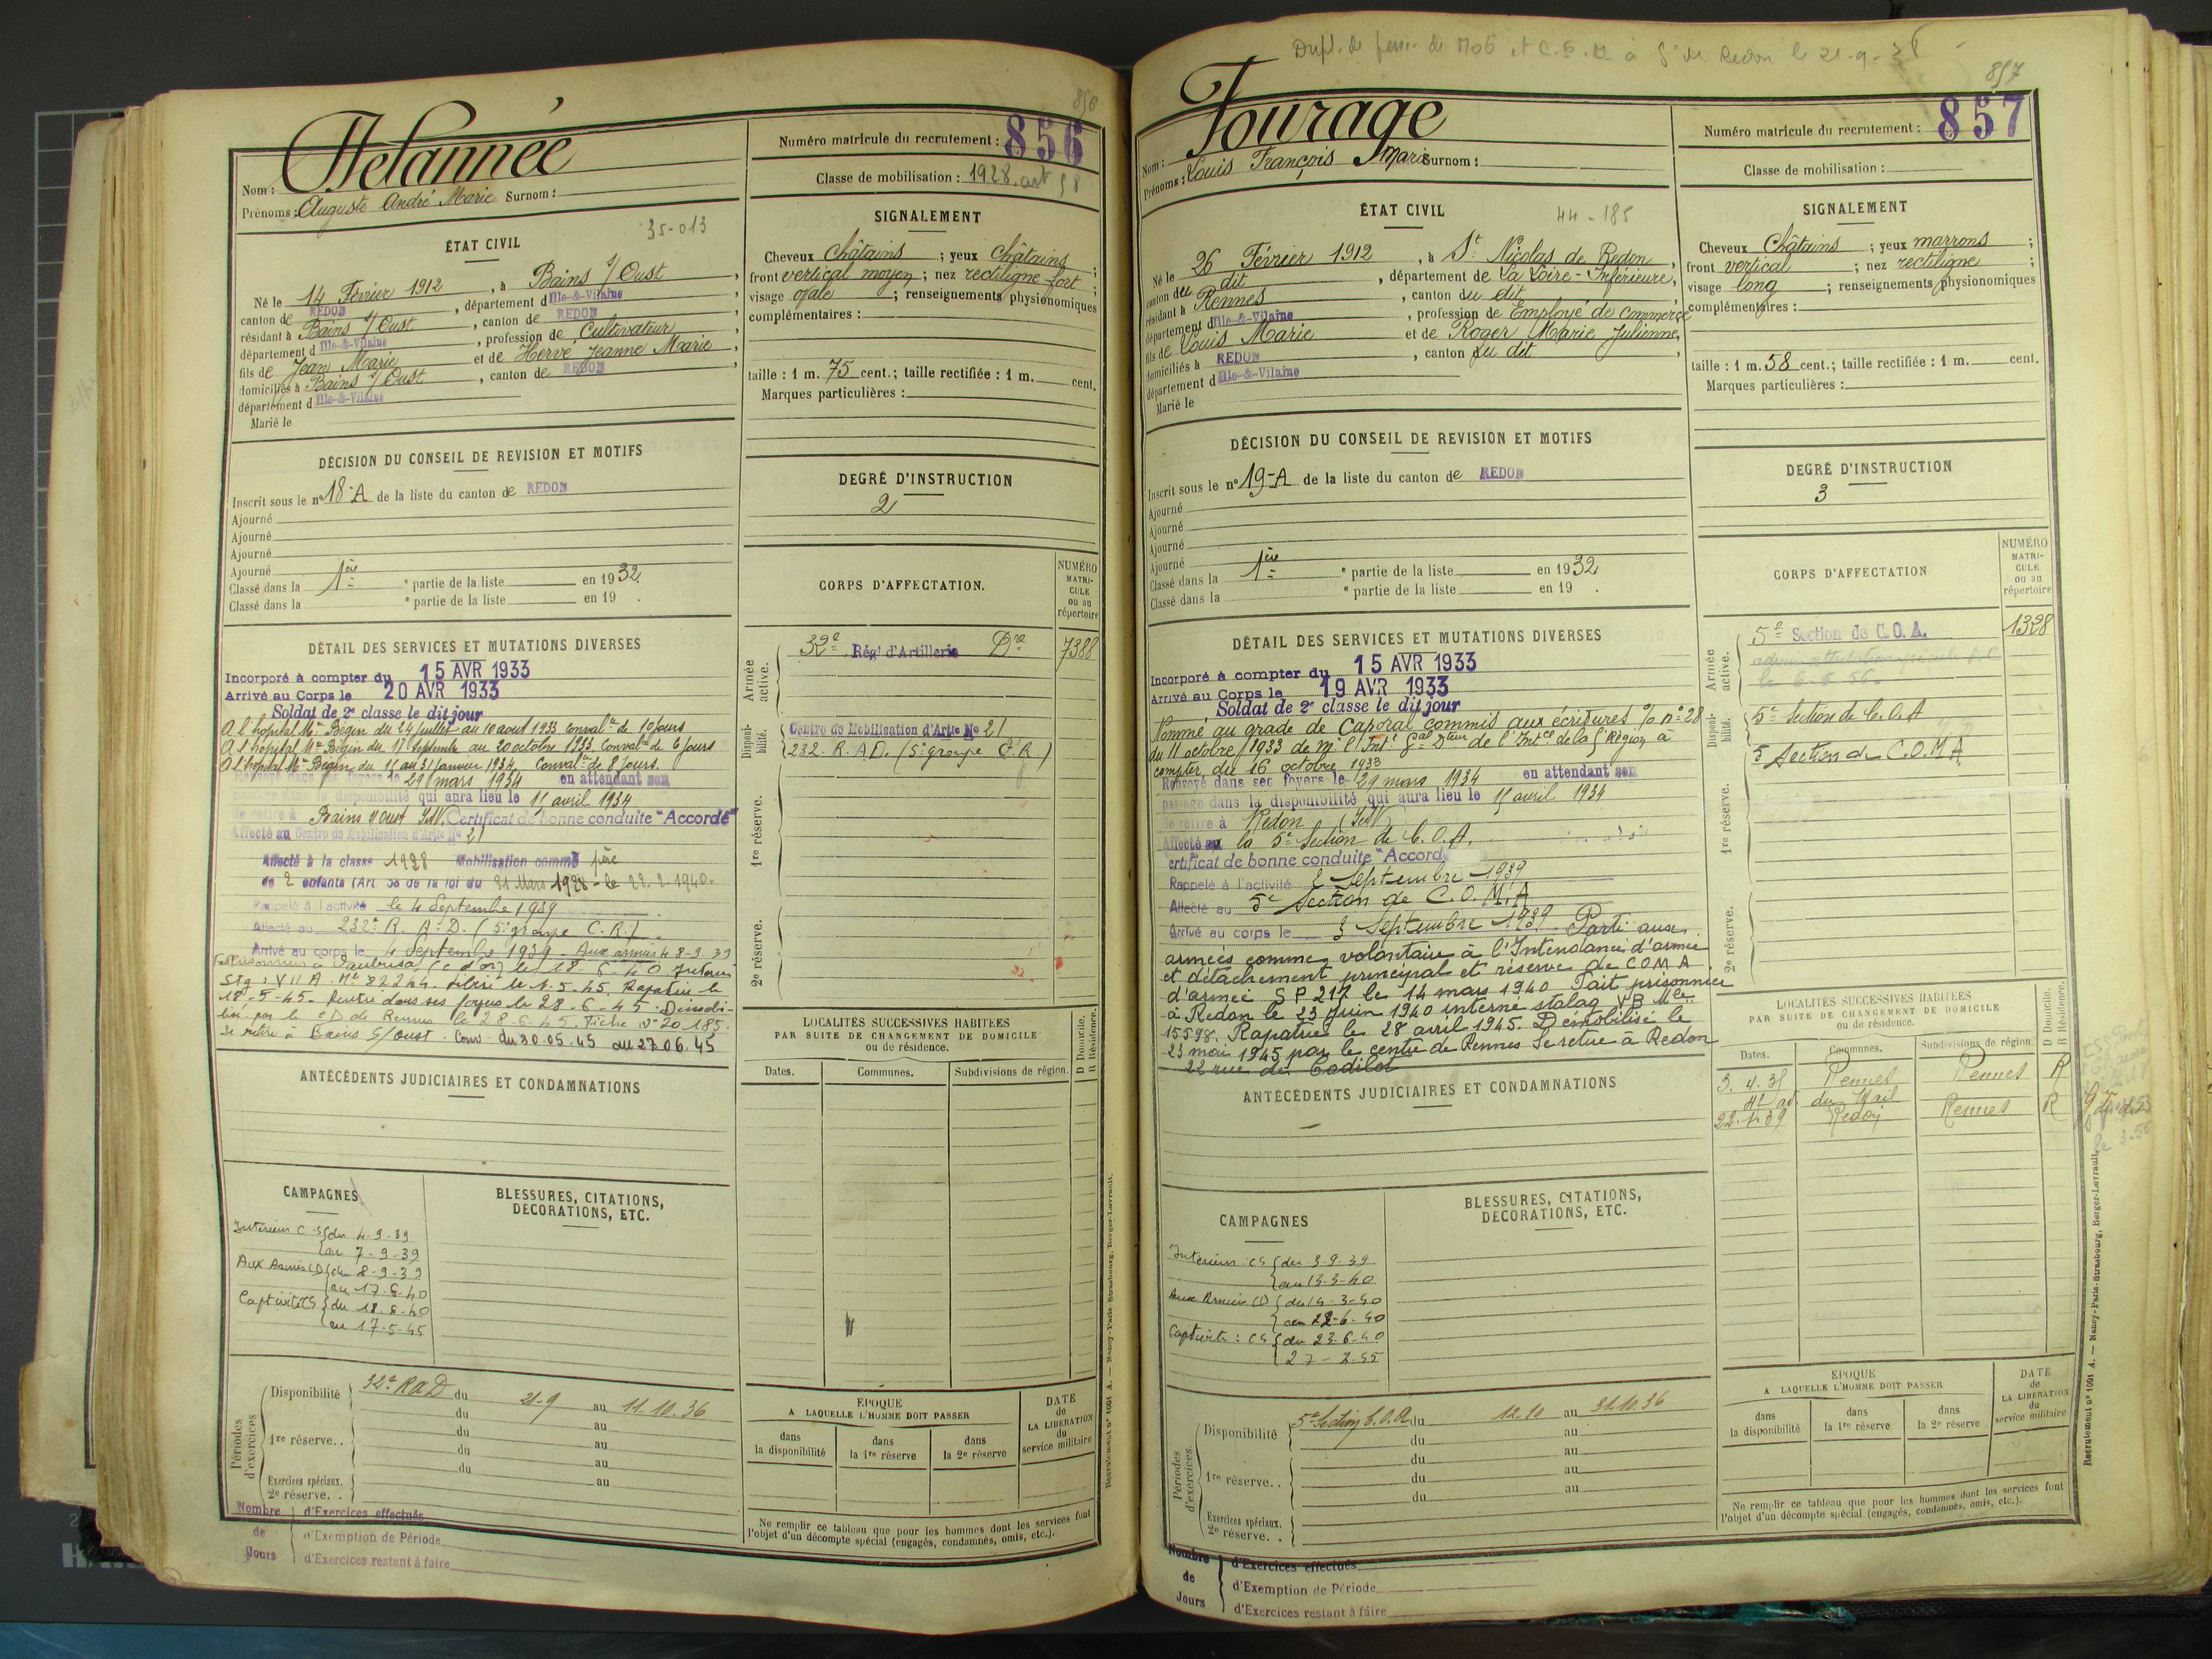 856
Helannée
Nom :
Prénoms : Auguste André Marie Surnom :
Numéro matricule du recrutement : 856
Classe de mobilisation : 1928. art 58
ÉTAT CIVIL
35-013
Né le 14 Février 1912, à Bains s/ Oust,
canton de REDON, département d Ille-&-Vilaine,
résidant à Bains s/ Oust, canton de REDON,
département d Ille-&-Vilaine, profession de Cultivateur,
fils de Jean Marie et de Hervé Jeanne Marie,
domiciliés à Bains s/ Oust, canton de REDON,
département d Ille-&-Vilaine
Marié le
SIGNALEMENT
Cheveux Châtains ; yeux Châtains ;
front vertical moyen ; nez rectiligne fort ;
visage ovale ; renseignements physionomiques
complémentaires :
taille : 1 m. 75 cent.; taille rectifiée : 1 m. cent.
Marques particulières :
DÉCISION DU CONSEIL DE REVISION ET MOTIFS
Inscrit sous le n° 18-A de la liste du canton de REDON
Ajourné
Ajourné
Ajourné
Ajourné
Classé dans la 1ère e partie de la liste en 1932.
Classé dans la e partie de la liste en 19 .
DEGRÉ D'INSTRUCTION
2
CORPS D'AFFECTATION.
NUMÉRO
MATRI-
CULE
ou au
répertoire
Armée active.
32e Régt d'Artillerie Dre 7388
Disponi- bilité.
Centre de Mobilisation d'Artie No 21
232. R.A.D. (5e groupe C.R.)
1re réserve.
2e réserve.
DÉTAIL DES SERVICES ET MUTATIONS DIVERSES
Incorporé à compter du 15 AVR 1933
Arrivé au Corps le 20 AVR 1933
Soldat de 2e classe le dit jour
A l'hopital Mre Bégin du 24 juillet au 10 aout 1933 convalce de 10 jours
A l'hopital Mre Bégin du 17 Septembre au 20 octobre 1933. Convalce de 6 jours
A l'hopital Mre Bégin du 11 au 31 janvier 1934. Convalce de 8 jours.
Renvoyé dans ses foyers le 29 mars 1934 en attendant son
passage dans la disponibilité qui aura lieu le 15 avril 1934
Se retire à Bains s/Oust I&V. Certificat de bonne conduite "Accordé"
Affecté au Centre de Mobilisation d'Artie No 21
Affecté à la classe 1928 Mobilisation comme père
de 2 enfants (Art 58 de la loi du 31 Mars 1928 - le 22.2.1940.
Rappelé à l'activité le 4 Septembre 1939
Affecté au 232e R.A.D. (5e groupe C.R.)
Arrivé au corps le 4 Septembre 1939. Aux armées 8-9-39
Fait Prisonnier à (C d'or) le 18-6-40. Interné
Stg : VII A. Mle 82244. Libéré le 1.5.45. Rapatrié le
18-5-45. Rentré dans ses foyers le 28-6-45. Démobi-
lisé par le CD de Rennes le 28.6.45. Fiche N° 20185.
Se retire à Bains s/oust. Cong. du 30.05.45 au 27.06.45
ANTÉCÉDENTS JUDICIAIRES ET CONDAMNATIONS
LOCALITÉS SUCCESSIVES HABITÉES
PAR SUITE DE CHANGEMENT DE DOMICILE
ou de résidence.
Dates. Communes. Subdivisions de région. D Domicile. R Résidence.
CAMPAGNES
Intérieur C.S { du 4-9-39
au 7-9-39
Aux Armées (D) { du 8-9-39
au 17.6-40
Captivité CS { du 18.6-40
au 17.5-45
BLESSURES, CITATIONS,
DÉCORATIONS, ETC.
Périodes d'exercices
Disponibilité 32e RAD du 21-9 au 11.10.36
du au
1re réserve.. du au
du au
du au
Exercices spéciaux. 2e réserve. . au
ÉPOQUE
A LAQUELLE L'HOMME DOIT PASSER
dans la disponibilité
dans la 1re réserve
dans la 2e réserve
DATE de LA LIBÉRATION du service militaire
Ne remplir ce tableau que pour les hommes dont les services font
l'objet d'un décompte spécial (engagés, condamnés, omis, etc.).
Nombre de Jours
d'Exercices effectués
d'Exemption de Période
d'Exercices restant à faire
Recrutement n° 1001 A. — Nancy-Paris-Strasbourg, Berger-Levrault.
Dupl. de de Mob et C.S.M à Redon le 21-9-38
857
Fourage
Nom :
Prénoms : Louis François Marie Surnom :
Numéro matricule du recrutement : 857
Classe de mobilisation :
ÉTAT CIVIL
44-185
Né le 26 Février 1912, à St Nicolas de Redon,
canton du dit, département de La Loire-Inférieure,
résidant à Rennes, canton du dit,
département d Ille-&-Vilaine, profession de Employé de commerce
fils de Louis Marie et de Roger Marie Julienne,
domiciliés à REDON, canton du dit,
département d Ille-&-Vilaine
Marié le
SIGNALEMENT
Cheveux Châtains ; yeux marrons ;
front vertical ; nez rectiligne ;
visage long ; renseignements physionomiques
complémentaires :
taille : 1 m. 58 cent.; taille rectifiée : 1 m. cent.
Marques particulières :
DÉCISION DU CONSEIL DE REVISION ET MOTIFS
Inscrit sous le n° 19-A de la liste du canton de REDON
Ajourné
Ajourné
Ajourné
Ajourné
Classé dans la 1ère e partie de la liste en 1932
Classé dans la e partie de la liste en 19 .
DEGRÉ D'INSTRUCTION
3
CORPS D'AFFECTATION
NUMÉRO
MATRI-
CULE
ou au
répertoire
Armée active.
5e Section de C.O.A. 1328
Disponi- bilité.
5e Section de C.O.A
5 Section de C.O.M.A
1re réserve.
2e réserve.
DÉTAIL DES SERVICES ET MUTATIONS DIVERSES
Incorporé à compter du 15 AVR 1933
Arrivé au Corps le 19 AVR 1933
Soldat de 2e classe le dit jour
Nommé au grade de Caporal commis aux écritures O/ n° 28
du 11 octobre 1933 de Mr l'Intt Gal Dteur de l'Intce de la 5e Région à
compter du 16 octobre 1933
Renvoyé dans ses foyers le 29 mars 1934 en attendant son
passage dans la disponibilité qui aura lieu le 15 avril 1934
Se retire à Redon (I&V)
Affecté au la 5e Section de C.O.A.
ertificat de bonne conduite "Accord
Rappelé à l'activité 2 Septembre 1939
Affecté au 5e Section de C.O.M.A
Arrivé au corps le 3 Septembre 1939 Parti aux
armées comme volontaire à l'Intendance d'armée
et détachement principal et réserve de COMA
d'armée S P 217 le 14 mars 1940 Fait prisonnier
à Redon le 23 juin 1940 interné stalag VB Mle
15598. Rapatrié le 28 avril 1945. Démobilisé le
23 mai 1945 par le centre de Rennes Se retire à Redon
22 rue du Codilot
ANTÉCÉDENTS JUDICIAIRES ET CONDAMNATIONS
LOCALITÉS SUCCESSIVES HABITÉES
PAR SUITE DE CHANGEMENT DE DOMICILE
ou de résidence.
Dates. Communes. Subdivisions de région. D Domicile. R Résidence.
3.4.35 Rennes Rennes R
41 av. du Mail
22.7.39 Redon Rennes R
CAMPAGNES
Intérieur : CS { du 3-9-39
au 13-3-40
Aux Armées (D) { du 14-3-40
au 22-6-40
Captivité : CS { du 23-6-40
BLESSURES, CITATIONS,
DÉCORATIONS, ETC.
Périodes d'exercices
Disponibilité 5e Section C.O.A du 12.10 au 31.10.36
du au
du au
1re réserve.. du au
du
Exercices spéciaux. 2e réserve. .
ÉPOQUE
A LAQUELLE L'HOMME DOIT PASSER
dans la disponibilité
dans la 1re réserve
dans la 2e réserve
DATE de LA LIBÉRATION du service militaire
Ne remplir ce tableau que pour les hommes dont les services font
l'objet d'un décompte spécial (engagés, condamnés, omis, etc.).
Nombre de Jours
d'Exercices effectués
d'Exemption de Période
d'Exercices restant à faire
Recrutement n° 1001 A. — Nancy-Paris-Strasbourg, Berger-Levrault.